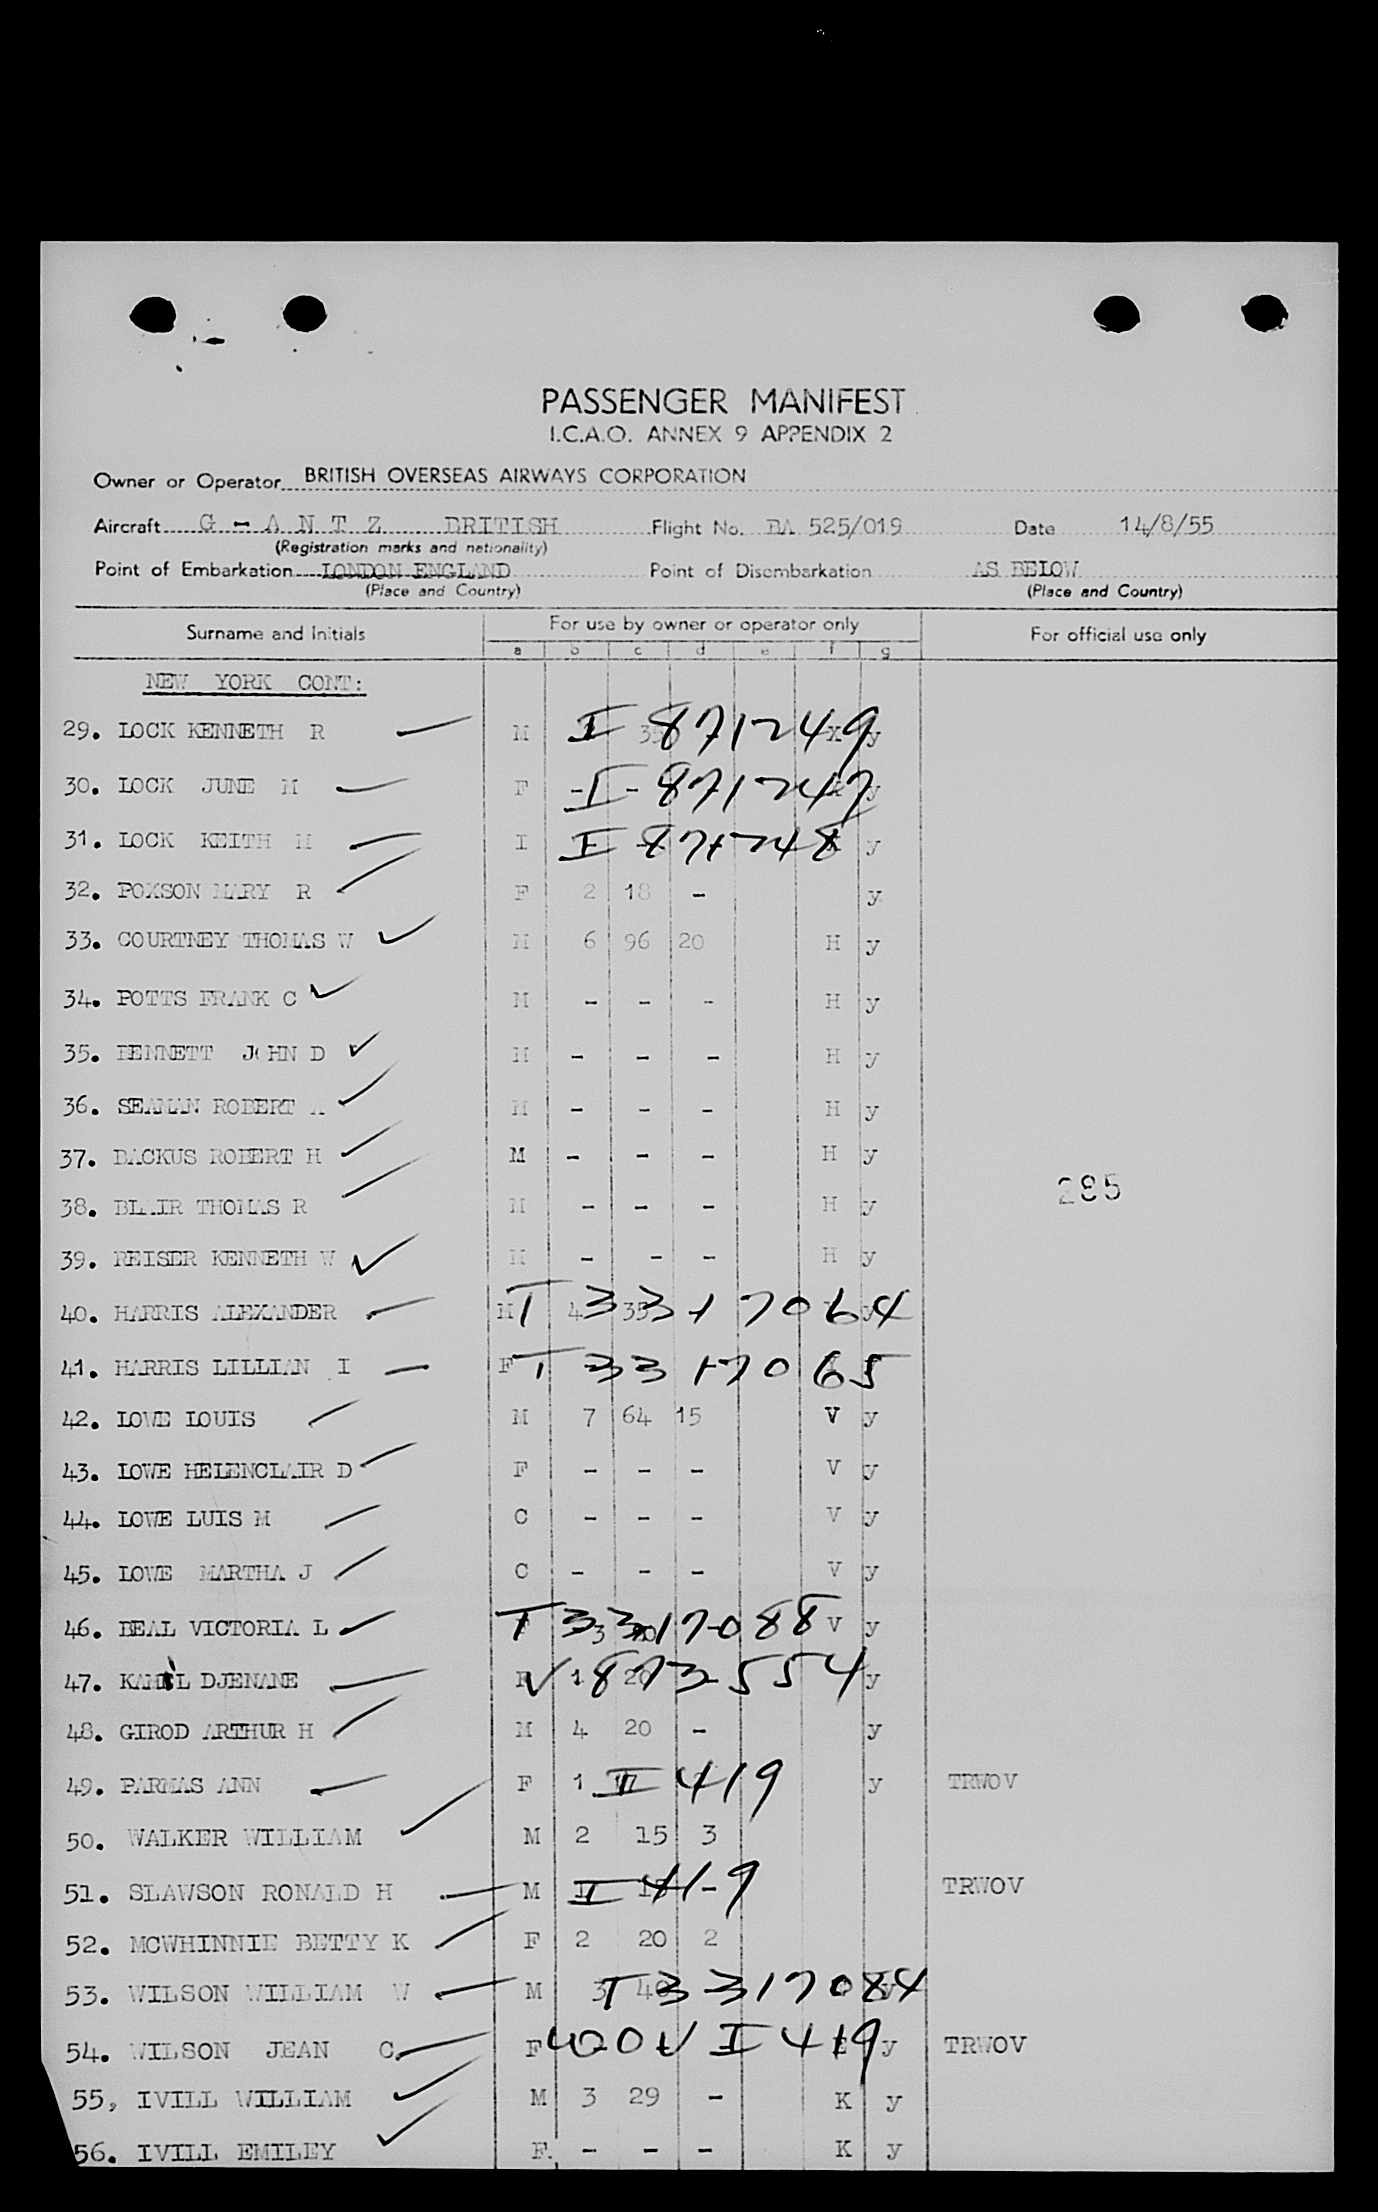 PASSENGER MANIFEST
I.C.A.O. ANNEX 9 APPENDIX 2
Owner or Operator BRITISH OVERSEAS AIRWAYS CORPORATION
Aircraft G - A N T Z BRITISH Flight No. BA 525/019 Date 14/8/55
(Registration marks and nationality)
Point of Embarkation LONDON ENGLAND Point of Disembarkation AS BELOW
(Place and Country) (Place and Country)
Surname and Initials For use by owner or operator only For official use only
a b c d e f g
NEW YORK CONT:
29. LOCK KENNETH R M I 871249 y
30. LOCK JUNE M F - I - 871247 y
31. LOCK KEITH M I I 871248 y
32. POXSON MARY R F 2 18 - y
33. COURTNEY THOMAS W M 6 96 20 H y
34. POTTS FRANK C M - - - H y
35. BENNETT JOHN D M - - - H y
36. SEAMAN ROBERT M - - - H y
37. BACKUS ROBERT H M - - - H y
38. BLAIR THOMAS R M - - - H y
285
39. REISER KENNETH W M - - - H y
40. HARRIS ALEXANDER M 4 35 T 3317064 y
41. HARRIS LILLIAN I F T 3317065
42. LOWE LOUIS M 7 64 15 V y
43. LOWE HELENCLAIR D F - - - V y
44. LOWE LUIS M C - - - V y
45. LOWE MARTHA J C - - - V y
46. BEAL VICTORIA L T 3317088 3 V y
47. KAMIL DJENANE F V 873554 1 20 y
48. GIROD ARTHUR H M 4 20 - y
49. PARMAS ANN F 1 II 419 y TRWOV
50. WALKER WILLIAM M 2 15 3
51. SLAWSON RONALD H M II 419 - TRWOV
52. MCWHINNIE BETTY K F 2 20 2
53. WILSON WILLIAM W M 3 40 T 3317084 y
54. WILSON JEAN C. F I 419 y TRWOV
55, IVILL WILLIAM M 3 29 - K y
56. IVILL EMILEY F. - - - K y